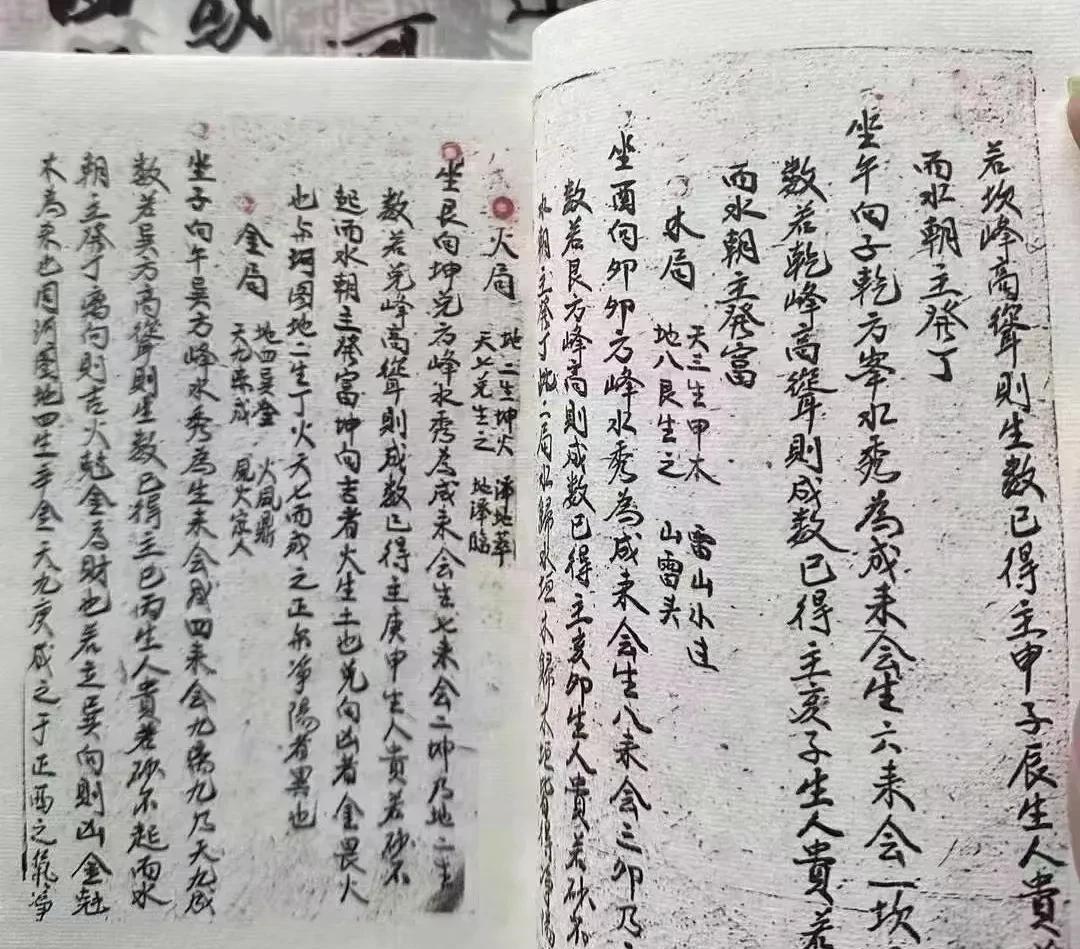 若坎峰高聳則生数已得主申子辰生人貴
而水朝主發丁
坐午向子乾方峯水秀為成来会生六来会一坎
数若乾峰高聳則成数已得主亥子生人貴若
而水朝主發富
木局
天三生甲木 雷山小过
地八艮生之 山雷头
坐酉向卯卯方峰水秀為成来会生八来会三卯乃
数若艮方峰高則成数已得主亥卯生人貴若砂不
水朝主發丁此二局水歸水垣木歸木垣
火局
地二生坤火 泽地萃
天七兑生之 地泽臨
坐艮向坤兑方峰水秀為成来会生七来会二坤乃地二生
数若兑峰高聳則成数已得主庚甲生人貴若砂不
起而水朝主發富坤向吉者火生土也兑向凶者金畏火
也与河图地二生丁火天七而成之正尔净陽者異也
金局
地四巽 火風鼎
天九來成 風火家人
坐子向午巽方峰水秀為生来会成四来会九离九乃天九成
数若巽方高聳則生数已得主巳丙生人貴若砂不起而水
朝主發丁离向則吉火尅金為財也若主巽向則凶金尅
木為来也因河圖地四生辛金天九庚成之于正西之氣净